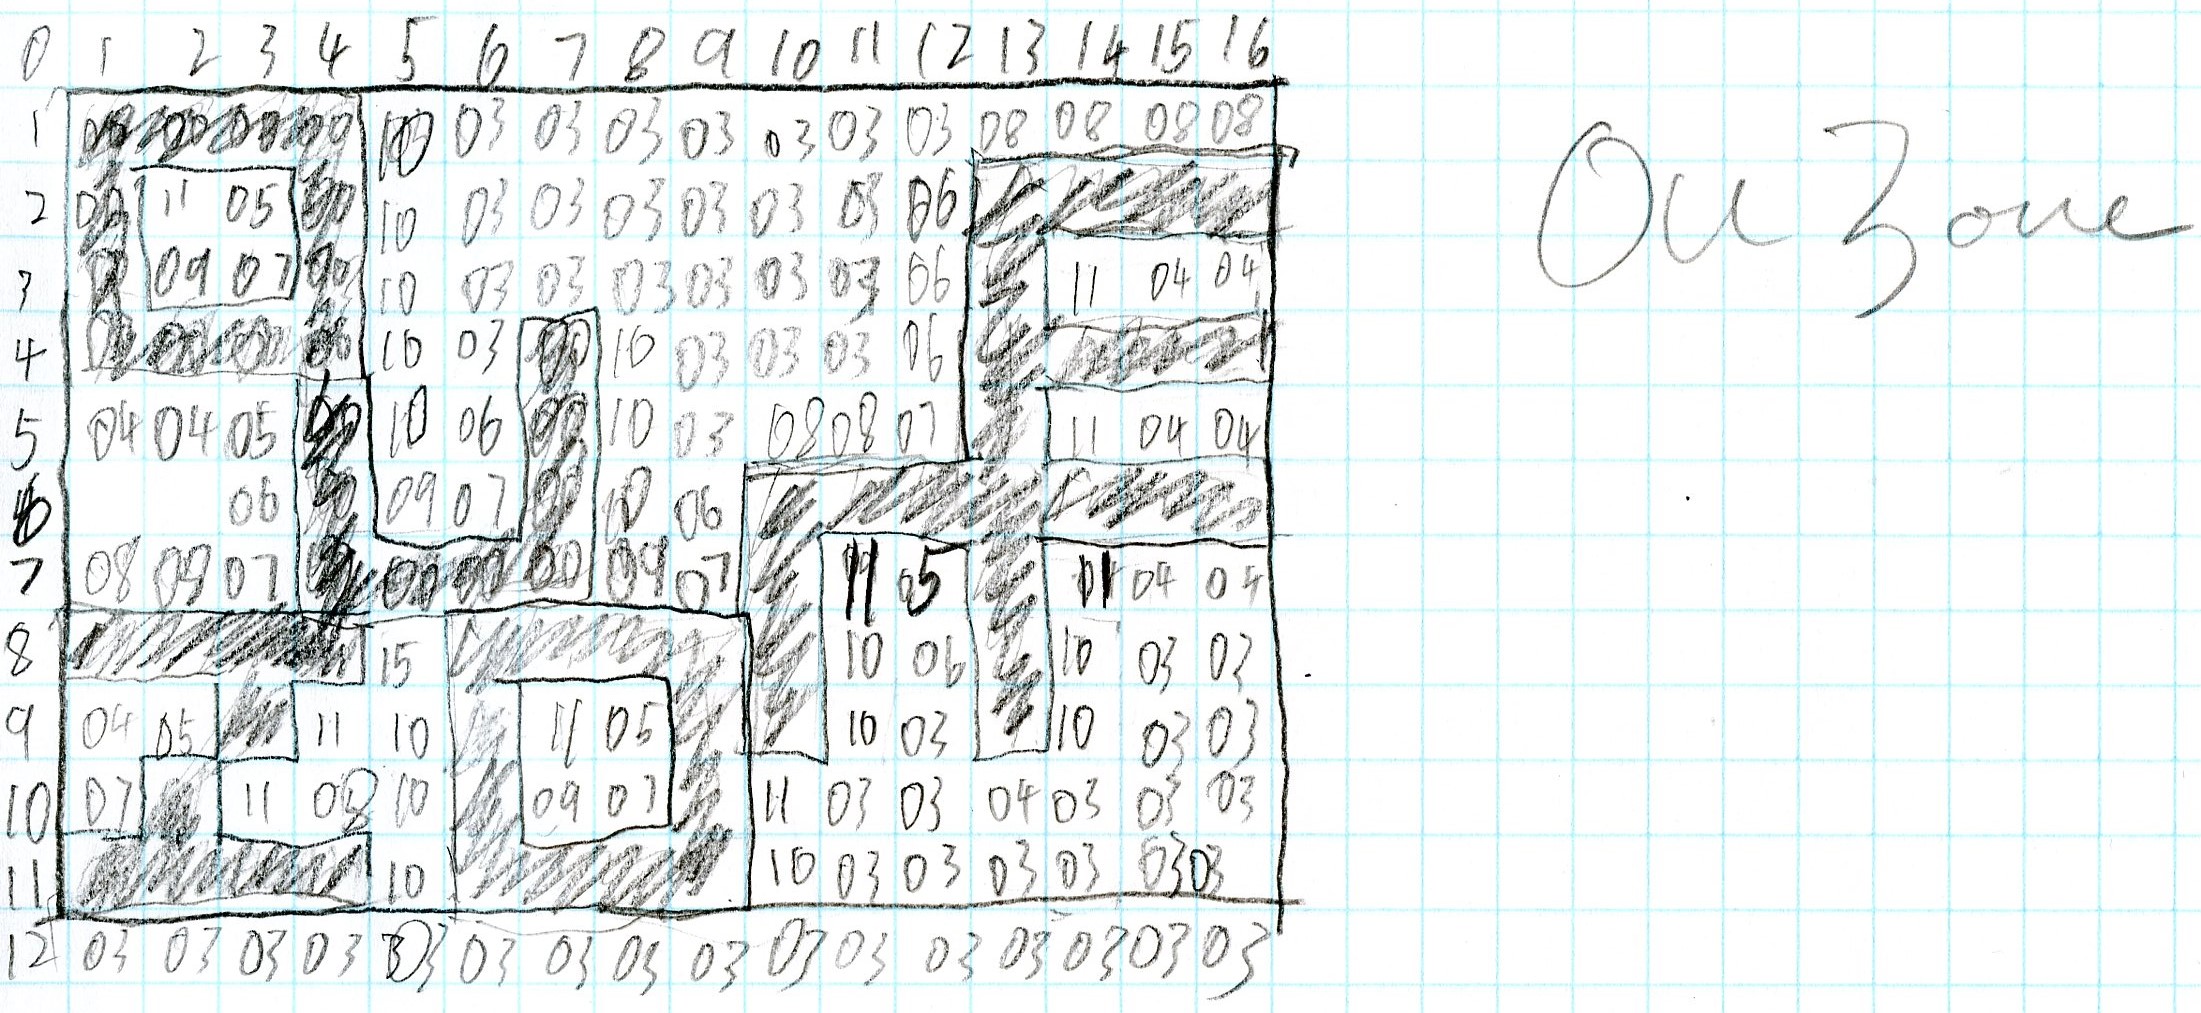 0 1 2 3 4 5 6 7 8 9 10 11 12 13 14 15 16
1 00 00 00 00 10 03 03 03 03 03 03 03 08 08 08 08
2 00 11 05 00 10 03 03 03 03 03 03 06
3 00 09 07 00 10 03 03 03 03 03 03 06 11 04 04
4 00 00 00 00 10 03 00 10 03 03 03 06
5 04 04 05 00 10 06 00 10 03 08 08 07 11 04 04
6 06 00 09 07 00 10 06
7 08 09 07 00 00 00 00 09 07 11 05 04 04
8 15 10 06 10 03 03
9 04 05 11 10 11 05 10 03 10 03 03
10 07 11 08 10 09 07 11 03 03 04 03 03 03
11 10 10 03 03 03 03 03 03
12 03 03 03 03 03 03 03 03 03 03 03 03 03 03 03